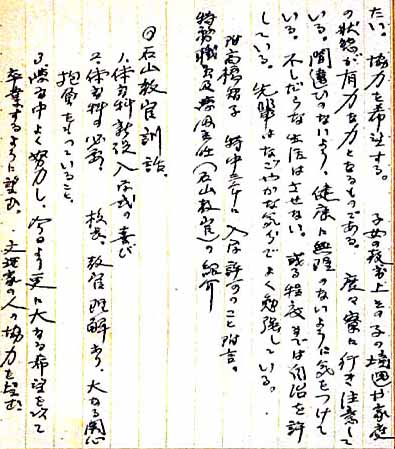 たい。協力を希望する。子女の教育上その子の境遇や家庭
の状態が有力な力となるものである。度々寮に行き注意して
いる。間違ひのないよう、健康に無理のないように気をつけて
いる。不しだらな生活はさせない。或る程度までは自治を許
している。先輩はなごやかな気分でよく勉強している。
附高橋 子 特中三年に入学許可のこと附言。
特務職員及寮母主任(石山教官)の紹介
◎石山教官訓話。
1.体育科新設入学式の喜び
2.体育科の必要。校長、教官理解あり、大なる関心
抱負をもっていること。
3.寮は仲よく努力し、今日より更に大なる希望を以て
卒業するように望む。文理家の人の協力を望む